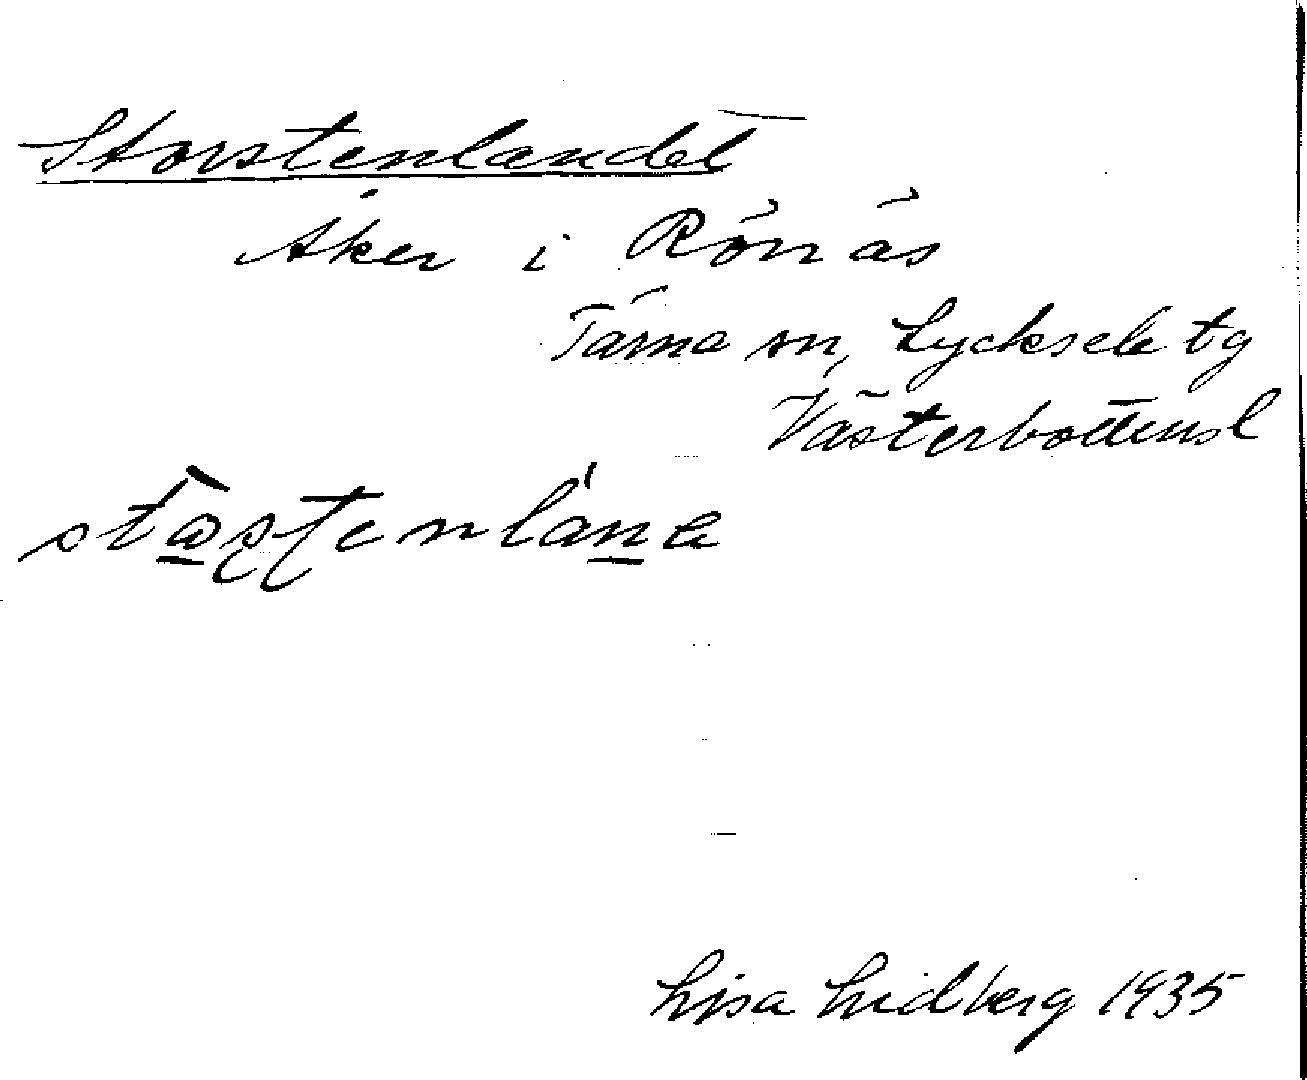 Storstenlandet
Åker i Rönäs
Tärna sn, Lycksele tg
Västerbottensl
Lisa Lidberg 1935